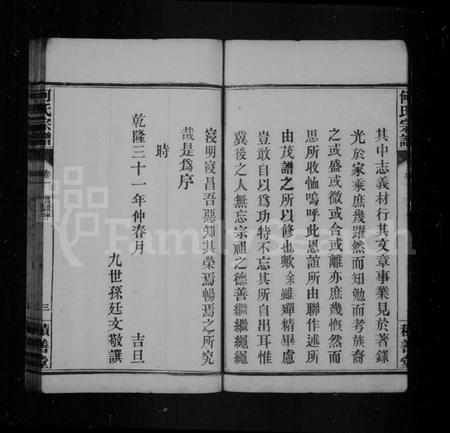 何氏宗譜
其中志義材行其文章事業見於著錄
光於家乘庶幾躍然而知勉而考族裔
之或盛或微或合或離亦庶幾慨然而
思所收恤嗚呼此恩誼所由聯作述所
由茂譜之所以修也歟余雖殫精畢慮
豈敢自以為功特不忘其所自出耳惟
冀後之人無忘宗祖之德善繼繼繩繩
積善堂
寖明寖昌吾惡知其榮焉暢焉之所究
哉是為序
時
乾隆三十一年仲春月
吉旦
九世孫廷文敬譔
何氏宗譜
卷一
三
積善堂
FamilySearch